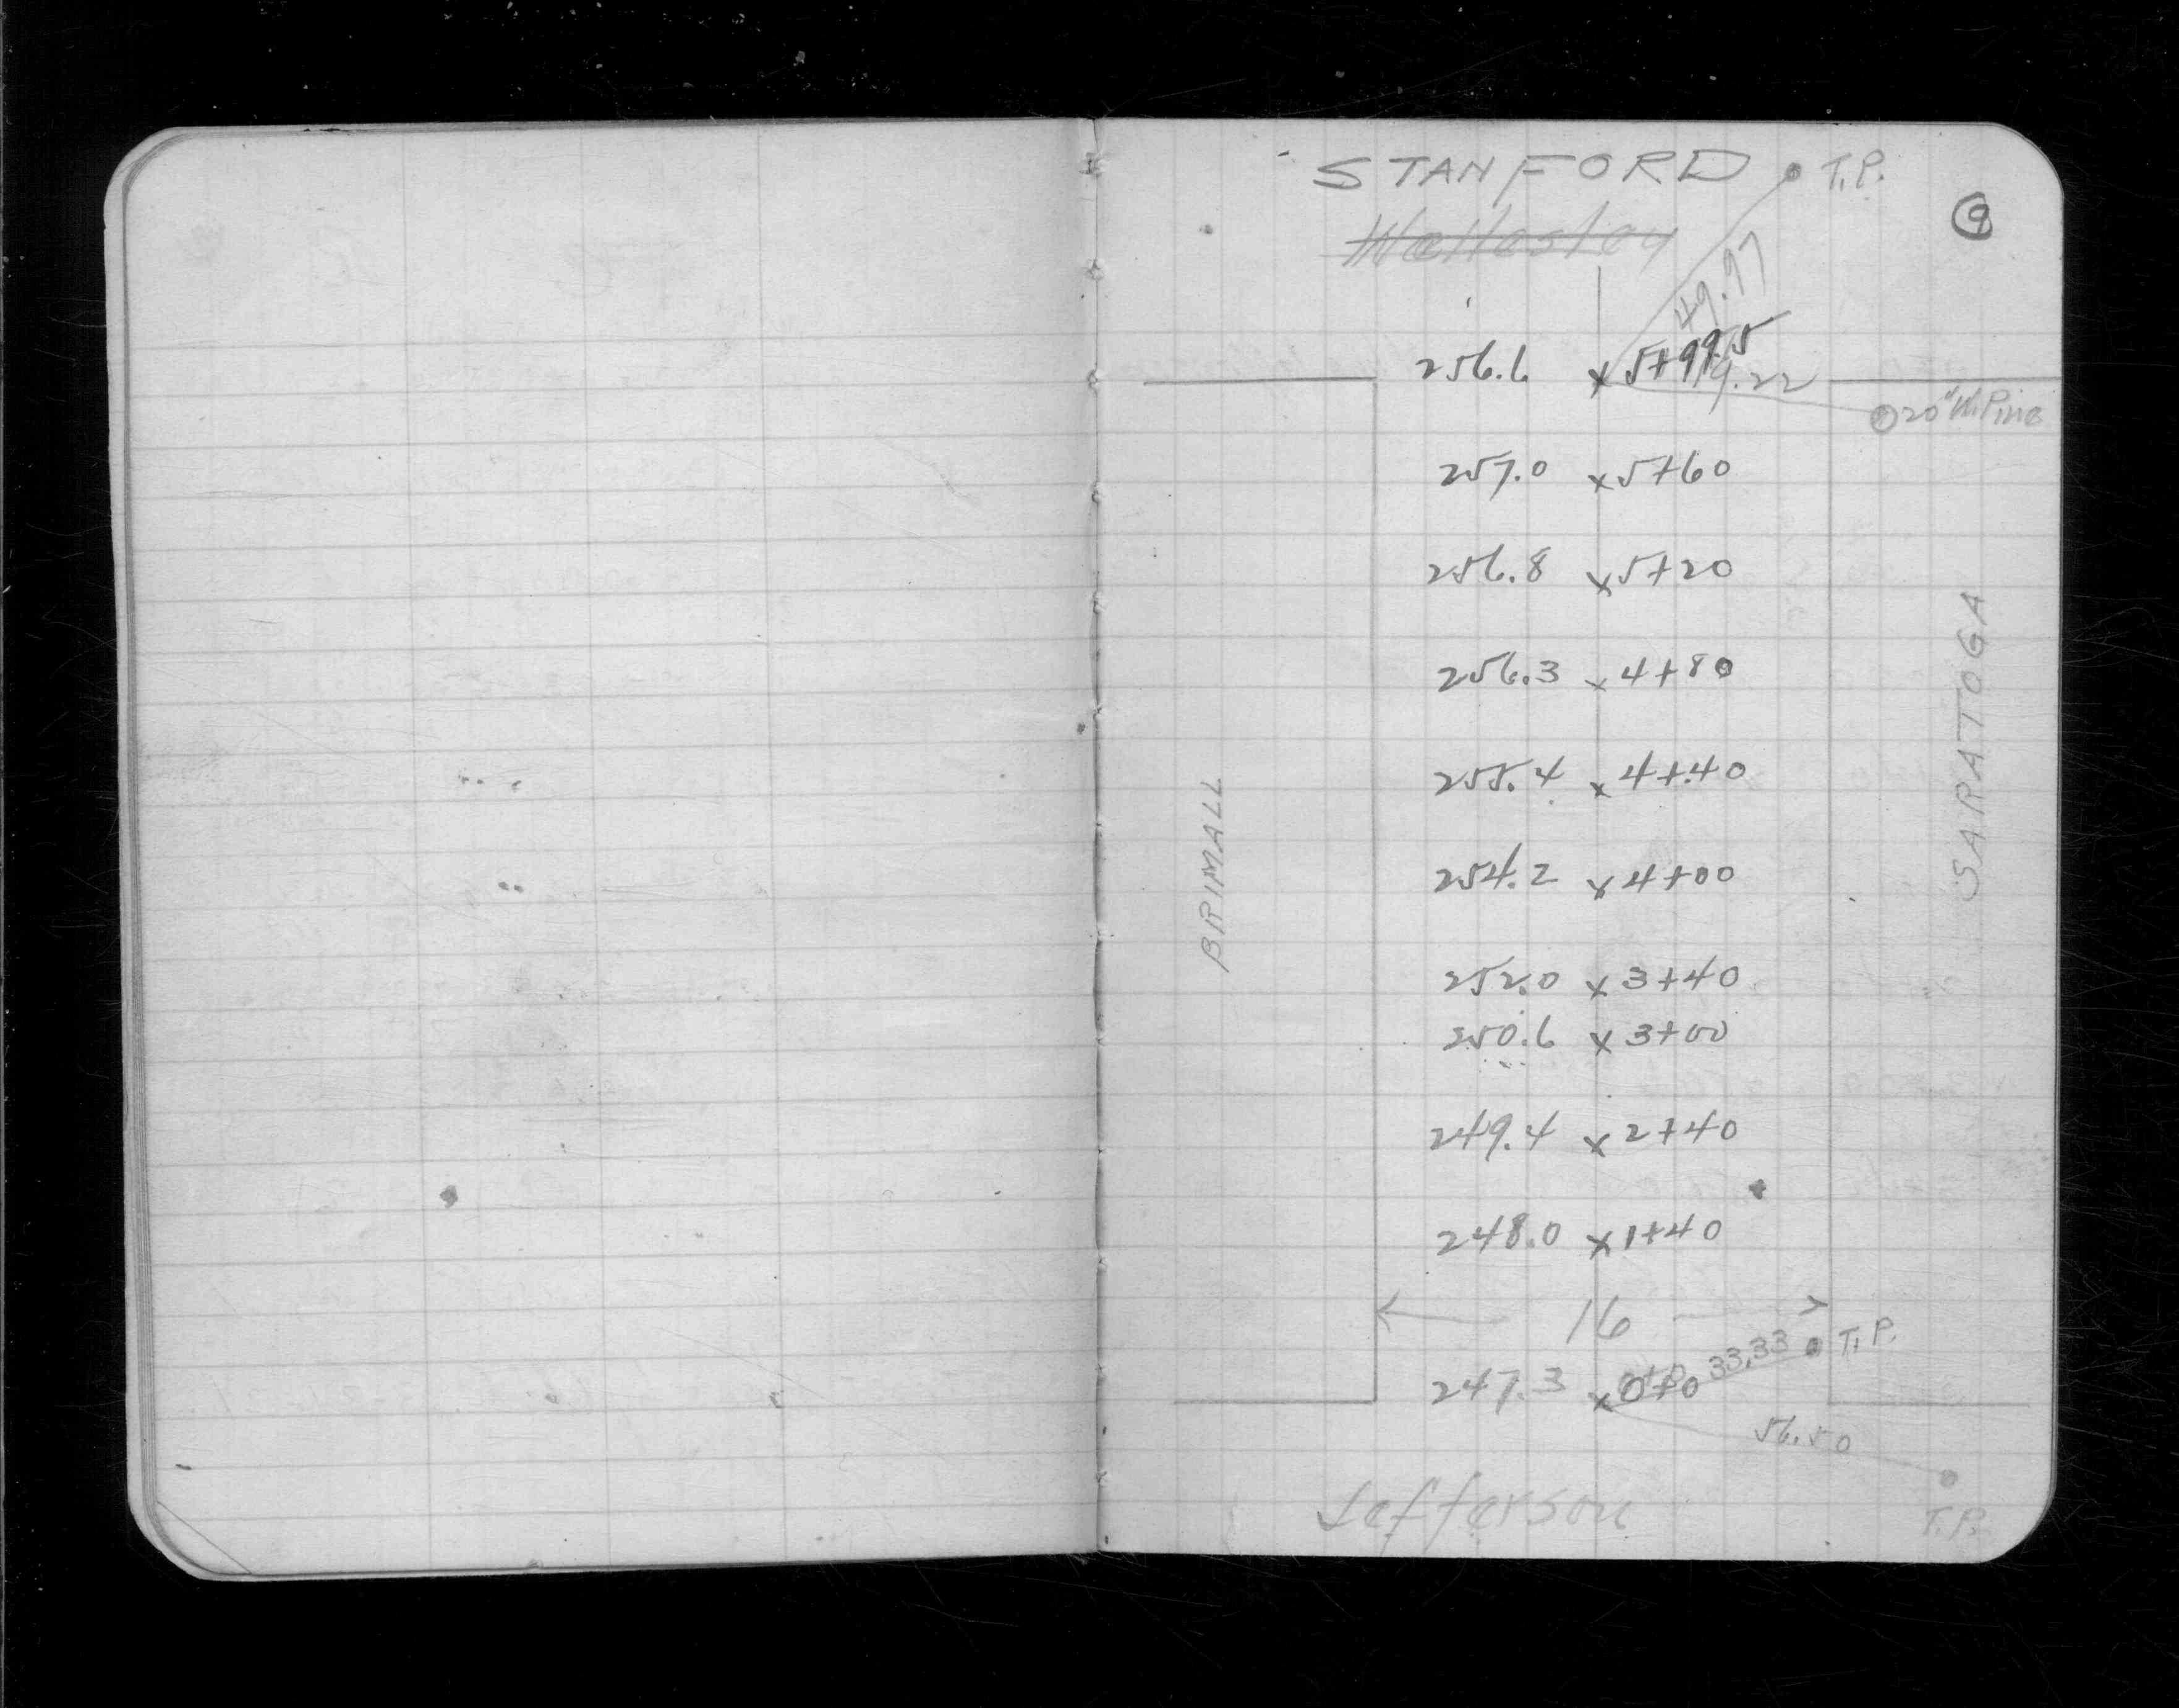 STANFORD T.P.
9
Wellesley
49.97
256.6 x 5+99.5
19.22
20" W. Pine
257.0 x 5+60
256.8 x 5+20
256.3 x 4+80
255.4 x 4+40
254.2 x 4+00
252.0 x 3+40
250.6 x 3+00
249.4 x 2+40
248.0 x 1+40
16
247.3 x 0+0 33.33 T.P.
56.50
Jefferson T.P.
BRIMALL
SARATTOGA